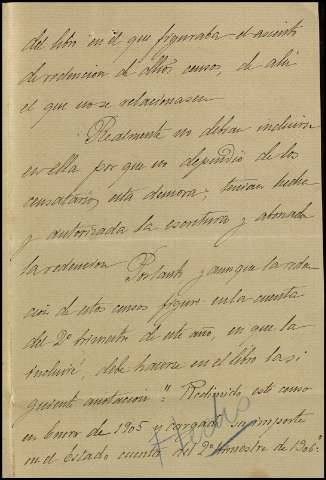 del libro en el que figuraba el asiento
de redencion de dhos censos, de ahí
el que no se relacionasen
Realmente no debian incluirse
en ella por que no dependió de los
censatarios esta demora; tenian hecha
y autorizada la escritura y abonada
la redencion
Por tanto y aunque la reden
cion de estos censos figure en la cuenta
del 2º trimestre de este año, en que la
incluiré, debe hacerse en el libro la si
guiente anotacion: "Redimido este censo
en Enero de 1905 y cargado su importe
en el Estado cuenta del 2º trimestre de 1906".
Hecho